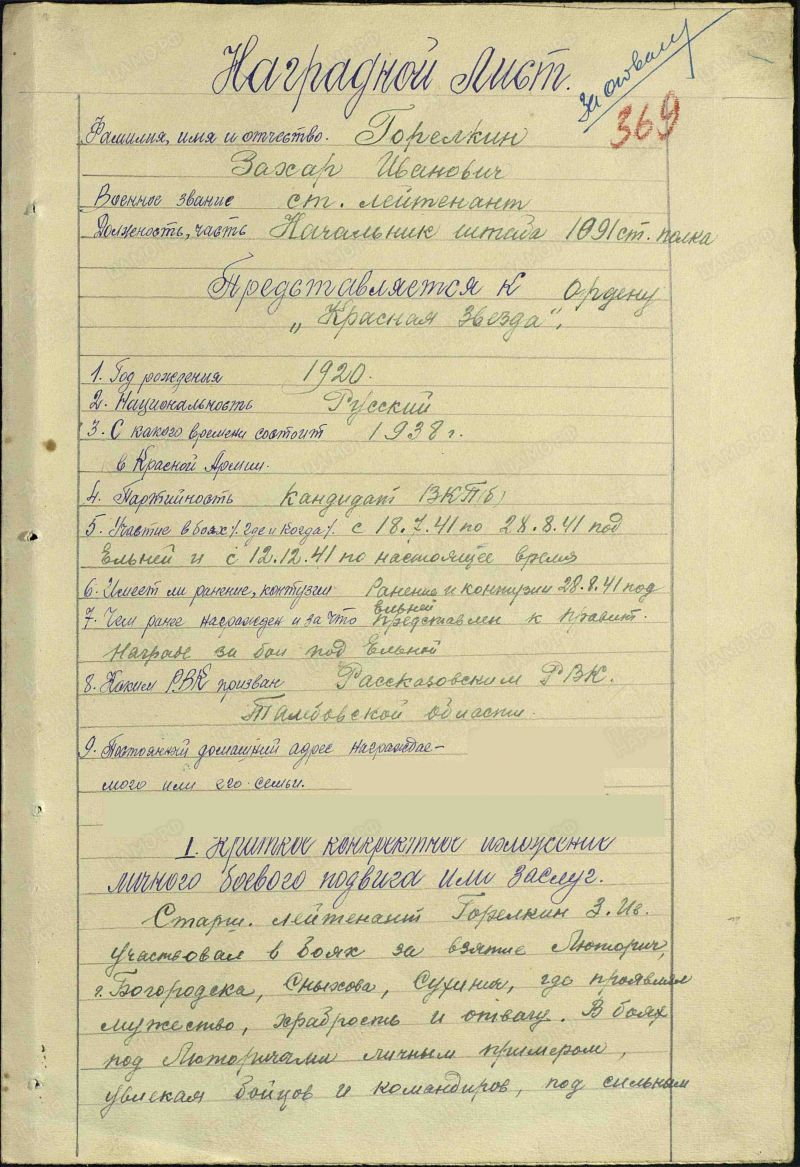 Наградной Лист.
369
Фамилия, имя и отчество. Горелкин
Захар Иванович
Военное звание ст. лейтенант
Должность, часть Начальник штаба 1091 ст. полка
Представляется к ордену
„Красная Звезда".
1. Год рождения 1920.
2. Национальность Русский
3. С какого времени состоит 1938 г.
в Красной Армии.
4. Партийность кандидат ВКП(б)
5. Участие в боях /. где и когда /. с 18.7.41 по 28.8.41 под
Ельней и с 12.12.41 по настоящее время
6. Имеет ли ранение, контузии Ранение и контузии 28.8.41 под
Ельней
7. Чем ранее награжден и за что представлен к правит.
награде за бои под Ельной
8. Каким РВК призван Рассказовским РВК.
Тамбовской области.
9. Постоянный домашний адрес награждае-
мого или его семьи.
I. Краткое конкретное изложение
личного боевого подвига или заслуг.
Старш. лейтенант Горелкин З. Ив.
участвовал в боях за взятие Люторич,
г. Богородска, Сныхова, Сухинич, где проявлял
мужество, храбрость и отвагу. В боях
под Люторичами личным примером,
увлекая бойцов и командиров, под сильным